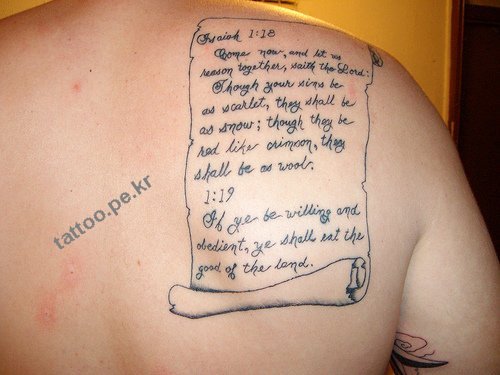 Isaiah 1:18
Come now, and let us
reason together, saith the Lord:
Though your sins be
as scarlet, they shall be
as snow; though they be
red like crimson, they
shall be as wool.
1:19
If ye be willing and
obedient, ye shall eat the
good of the land.
tattoo.pe.kr